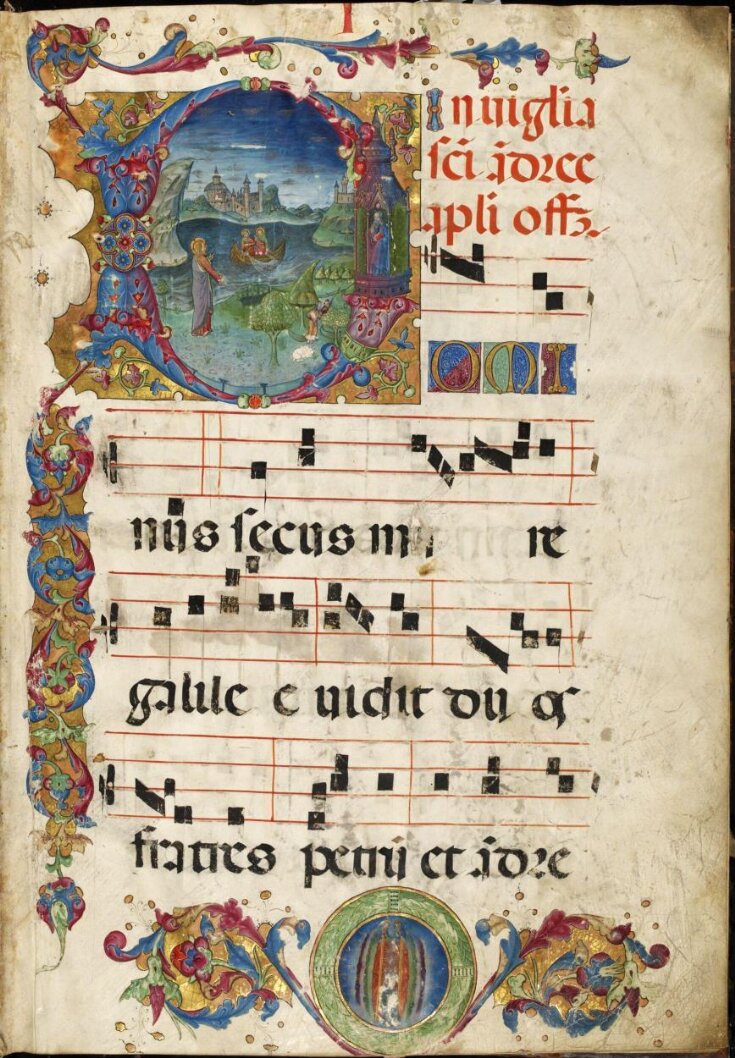 I
In uigilia
sci ādree
apli offz.
DOMI
nus secus ma re
galile e uidit duos
fratres petrū et ādre